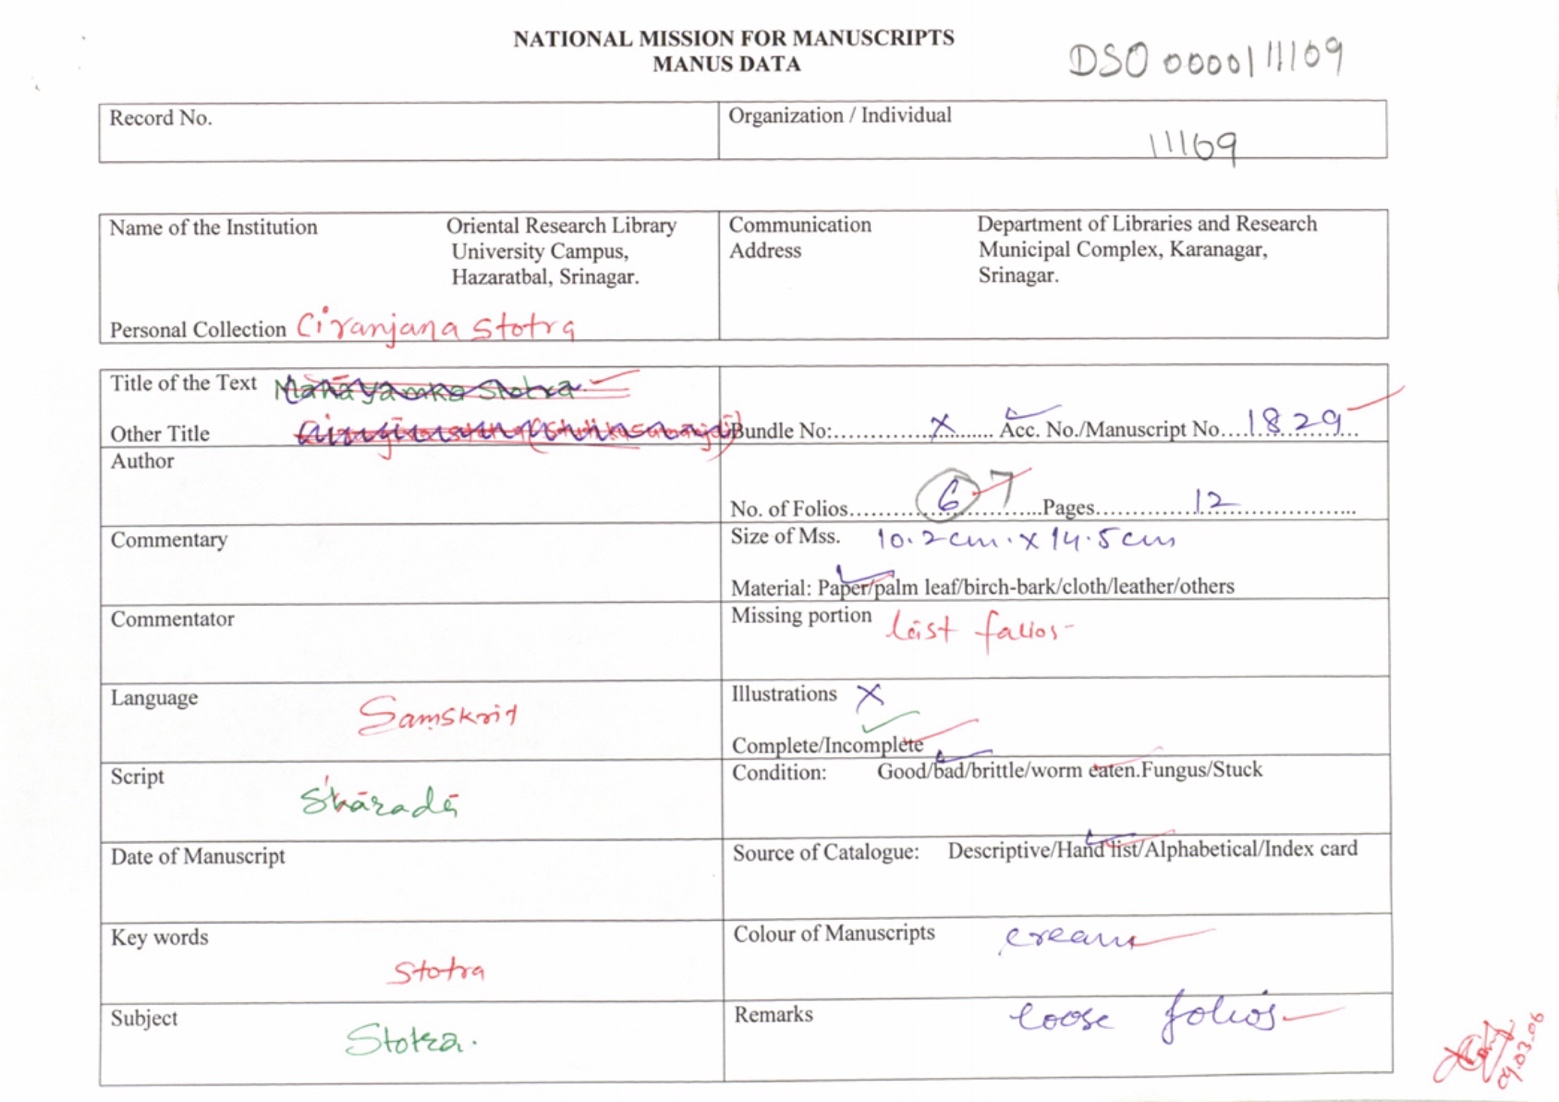 NATIONAL MISSION FOR MANUSCRIPTS
MANUS DATA
DSO 000011109
Record No.
Organization / Individual
11169
Name of the Institution Oriental Research Library
University Campus,
Hazaratbal, Srinagar.
Communication Department of Libraries and Research
Address Municipal Complex, Karanagar,
Srinagar.
Personal Collection Ciranjana Stotra
Title of the Text
Other Title
Bundle No:.............X.......... Acc. No./Manuscript No....1829...
Author
No. of Folios............6 7............Pages............12............
Commentary
Size of Mss. 10.2cm. x 14.5cm
Material: Paper/palm leaf/birch-bark/cloth/leather/others
Commentator
Missing portion last falios-
Language Saṃskrit
Illustrations X
Complete/Incomplete
Script Shāradā
Condition: Good/bad/brittle/worm eaten.Fungus/Stuck
Date of Manuscript
Source of Catalogue: Descriptive/Hand list/Alphabetical/Index card
Key words Stotra
Colour of Manuscripts cream
Subject Stotra.
Remarks loose folios
09.03.06